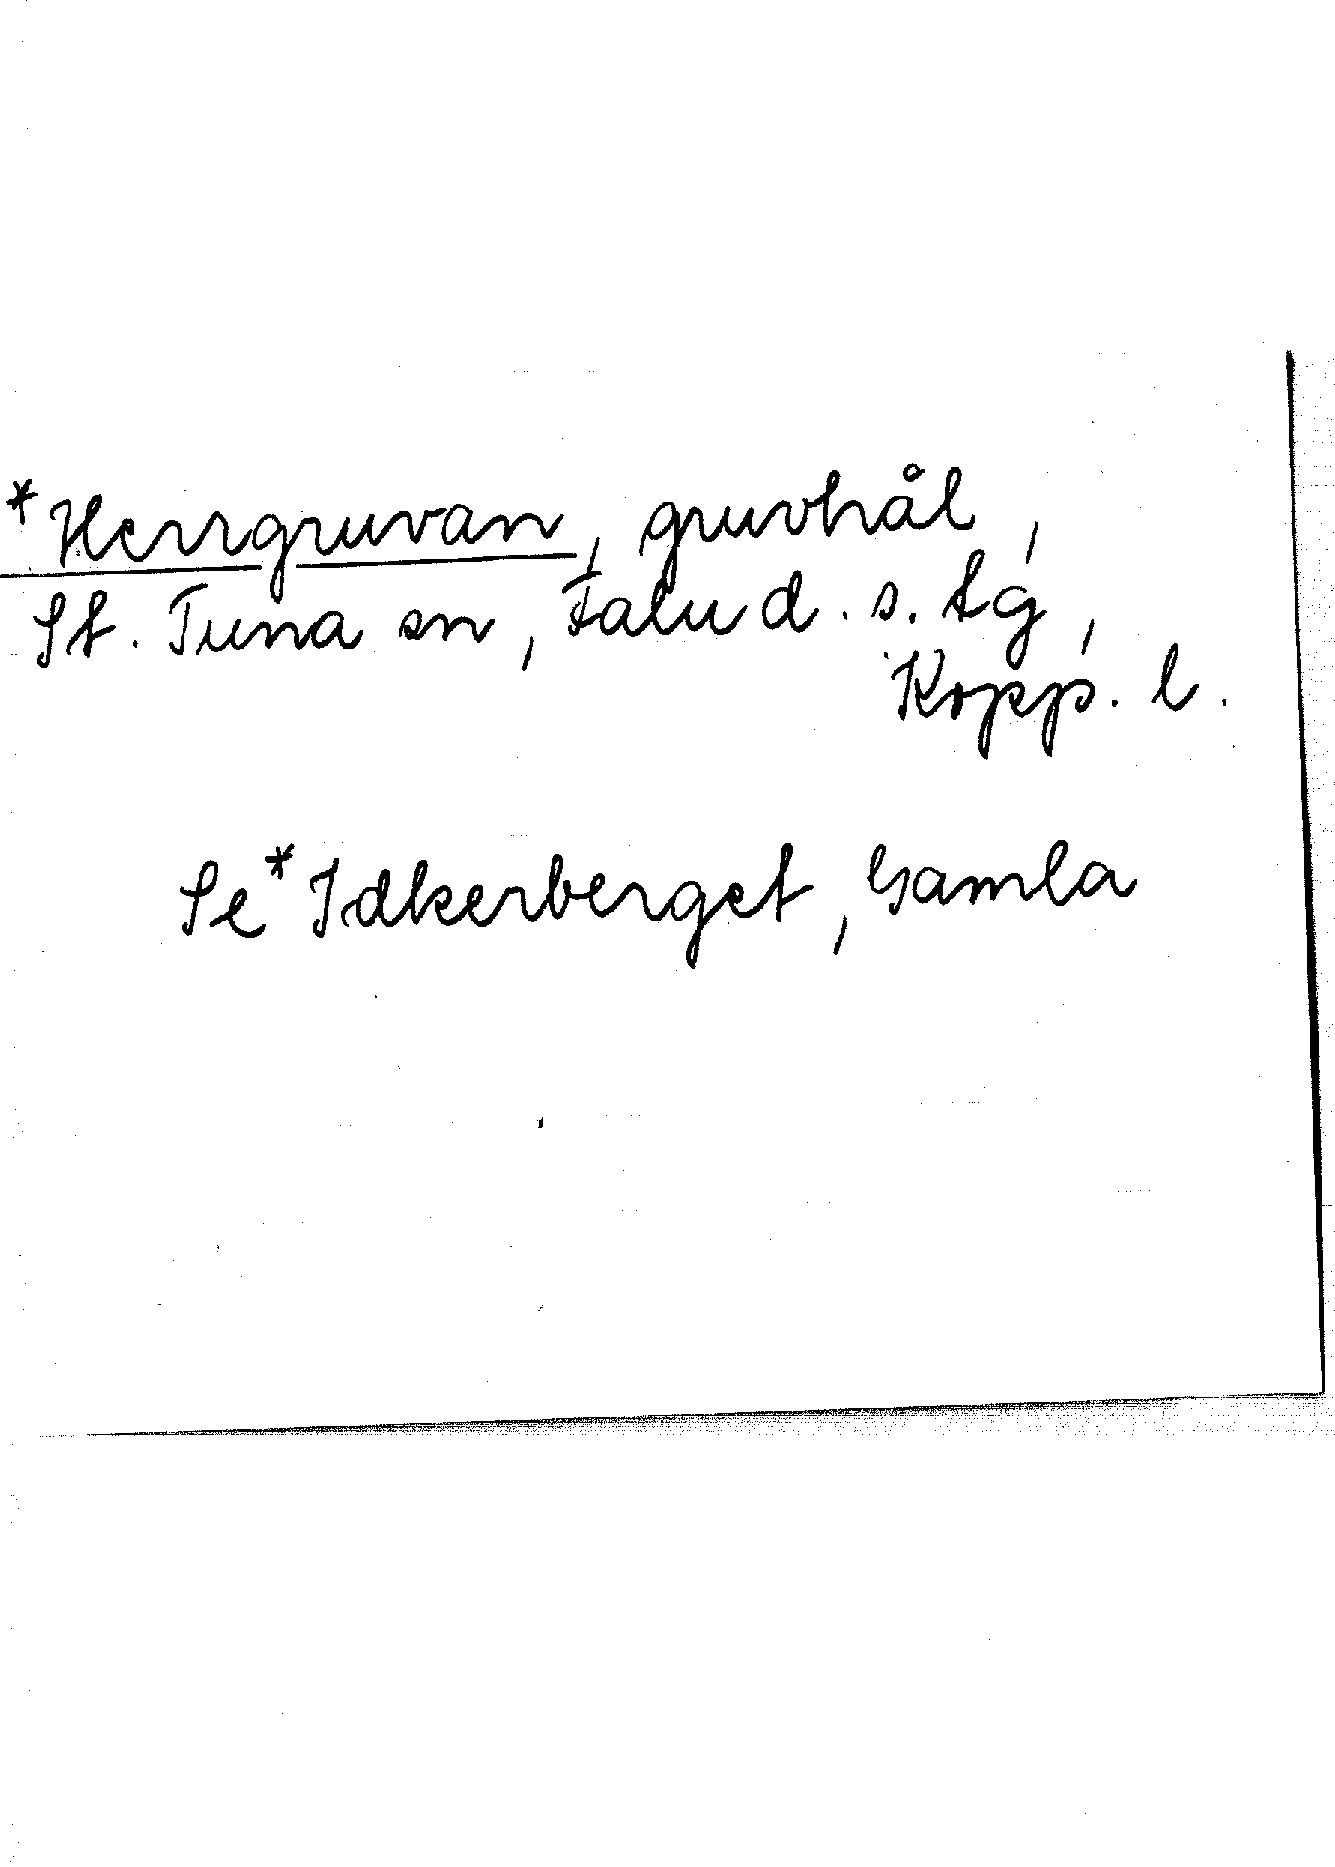 *Herrgruvan, gruvhål,
St. Tuna sn, Falu d. s. tg,
Kopp. l.
Se *Idkerberget, Gamla